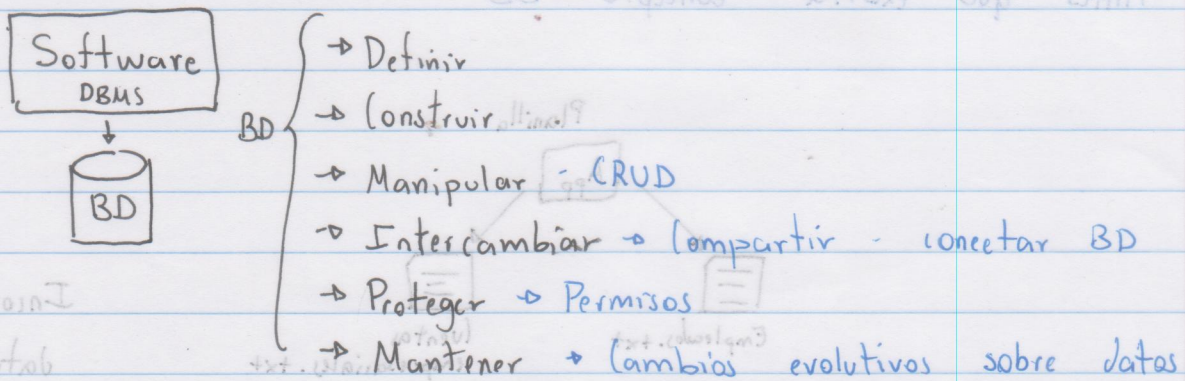 Software
DBMS
BD
BD
→ Definir
→ Construir
→ Manipular - CRUD
→ Intercambiar → Compartir - conectar BD
→ Proteger → Permisos
→ Mantener → Cambios evolutivos sobre datos
Planilla
App
Empleados.txt
Cuentas